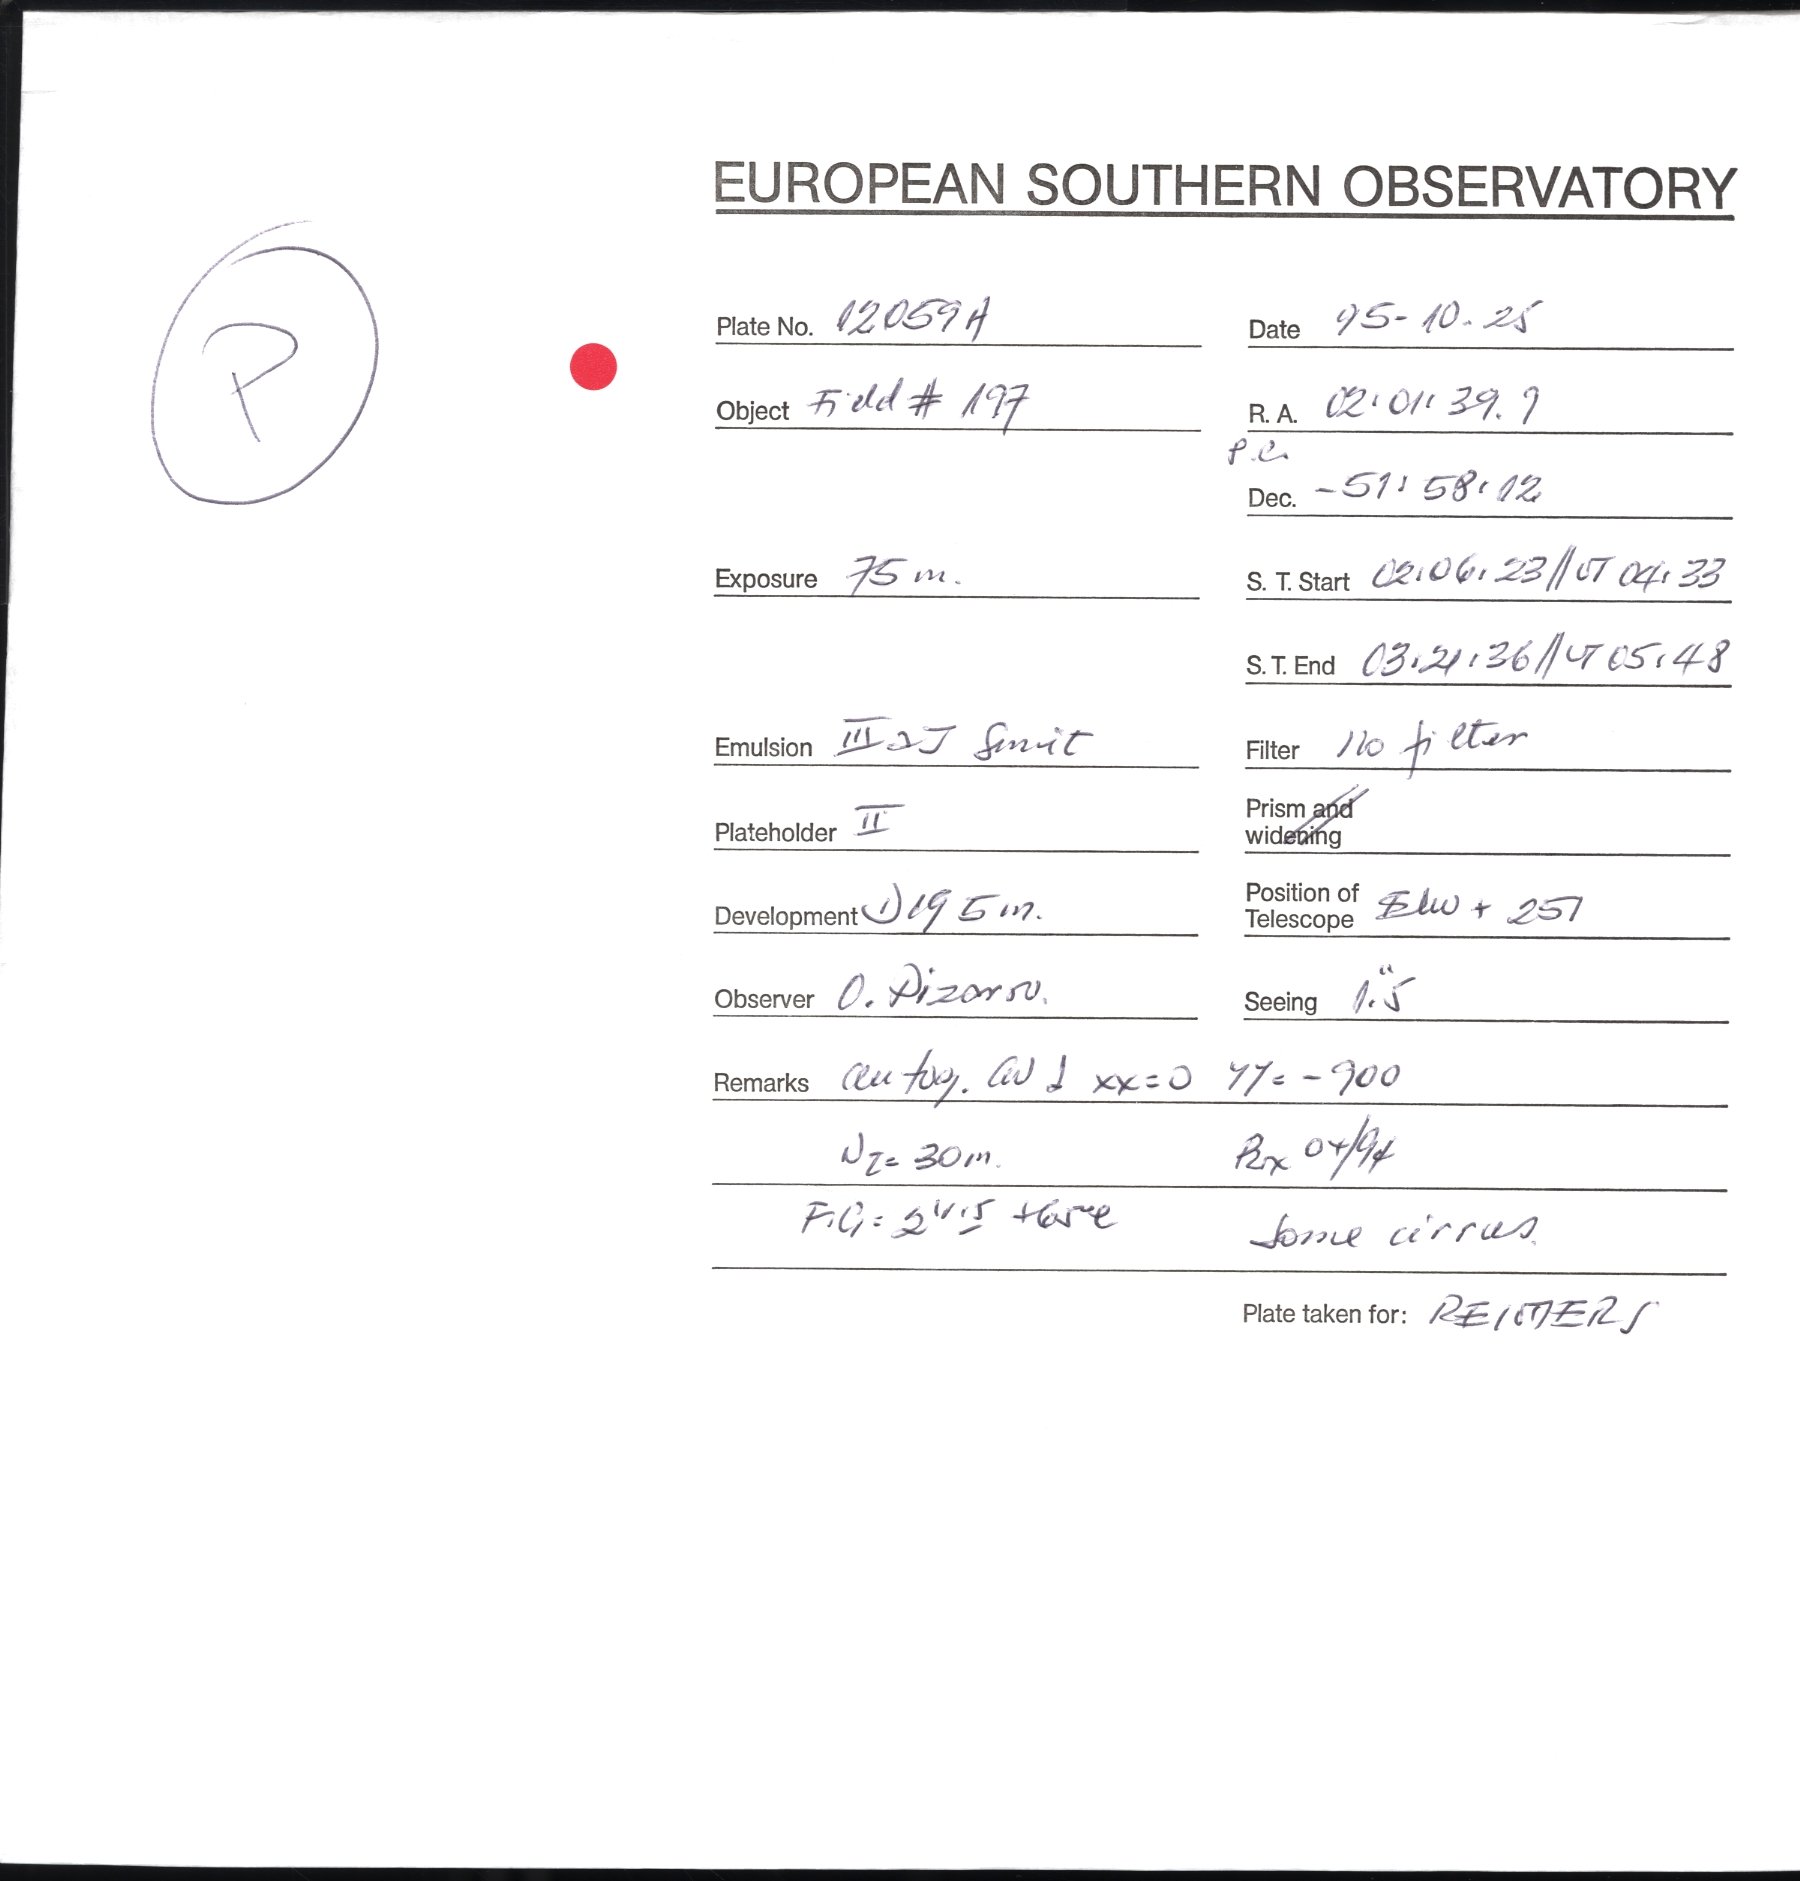 EUROPEAN SOUTHERN OBSERVATORY
P
Plate No. 12059A
Date 95-10-25
Object Field # 197
R. A. 02:01:39.9
P.C.
Dec. -51:58:12
Exposure 75 m.
S. T. Start 02:06:23 // UT 04:33
S. T. End 03:21:36 // UT 05:48
Emulsion IIIaJ
Filter no filter
Plateholder II
Prism and
widening
Development 1) 19 5 m.
Position of
Telescope + 251
Observer O. Pizarro.
Seeing 1."5
Remarks autog. xx=0 YY= -900
N2= 30 m.
F.G=
Some cirrus.
Plate taken for: REIMERS